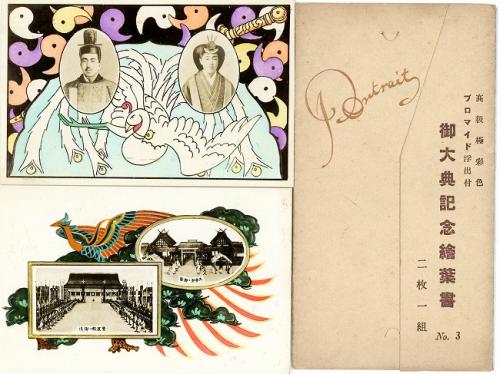 Portrait
高級極彩色
ブロマイド浮出付
御大典記念繪葉書
二枚一組
No. 3